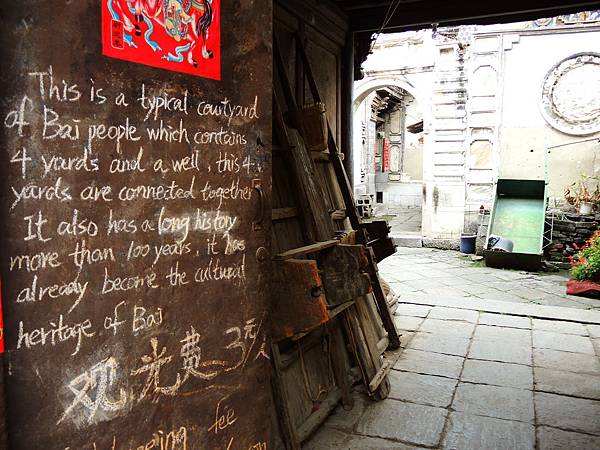 This is a typical courtyard
of Bai people which contains
4 yards and a well, this 4
yards are connected together
It also has a long history
more than 100 years, it has
already become the cultural
heritage of Bai
观光费3元/人
seeing fee